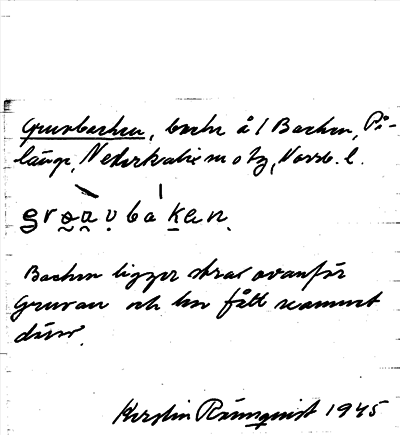 Gruvbacken, backe å / Backen, På-
länge, Nederkalix
grɷɑvbakan
Backen ligger strax ovanför
Gruvan och har fått namnet
därav.
Kerstin Rönnqvist 1945